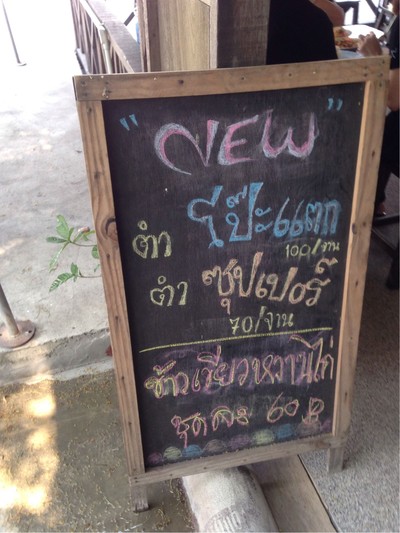 "NEW"
ตำ โป๊ะแตก
100/จาน
ตำ ซุปเปอร์
70/จาน
ข้าวเขียวหวานไก่
ชุดละ 60 ฿